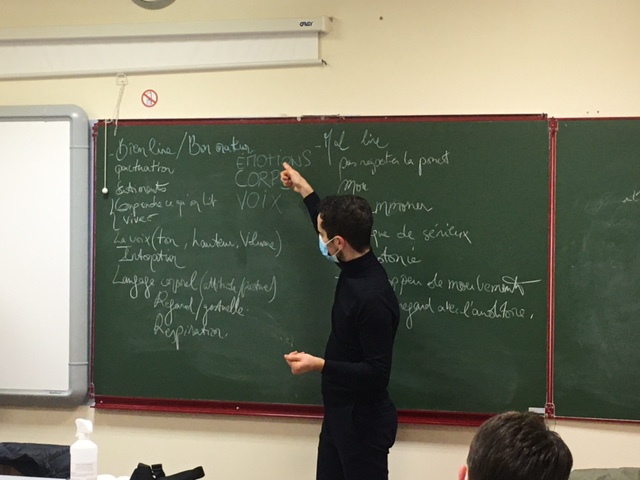 oray
- Bien lire / Bon orateur
ponctuation
Sentiments
Comprendre ce qu'on lit
Vivre
La voix (Ton, hauteur, Volume)
Intonation
Langage corporel (attitude / posture)
Regard / gestuelle
Respiration.
EMOTIONS
CORPS
VOIX
- Mal lire
pas respecter la ponct
Mou
de sérieux
de mouvement
regard avec l'auditoire.